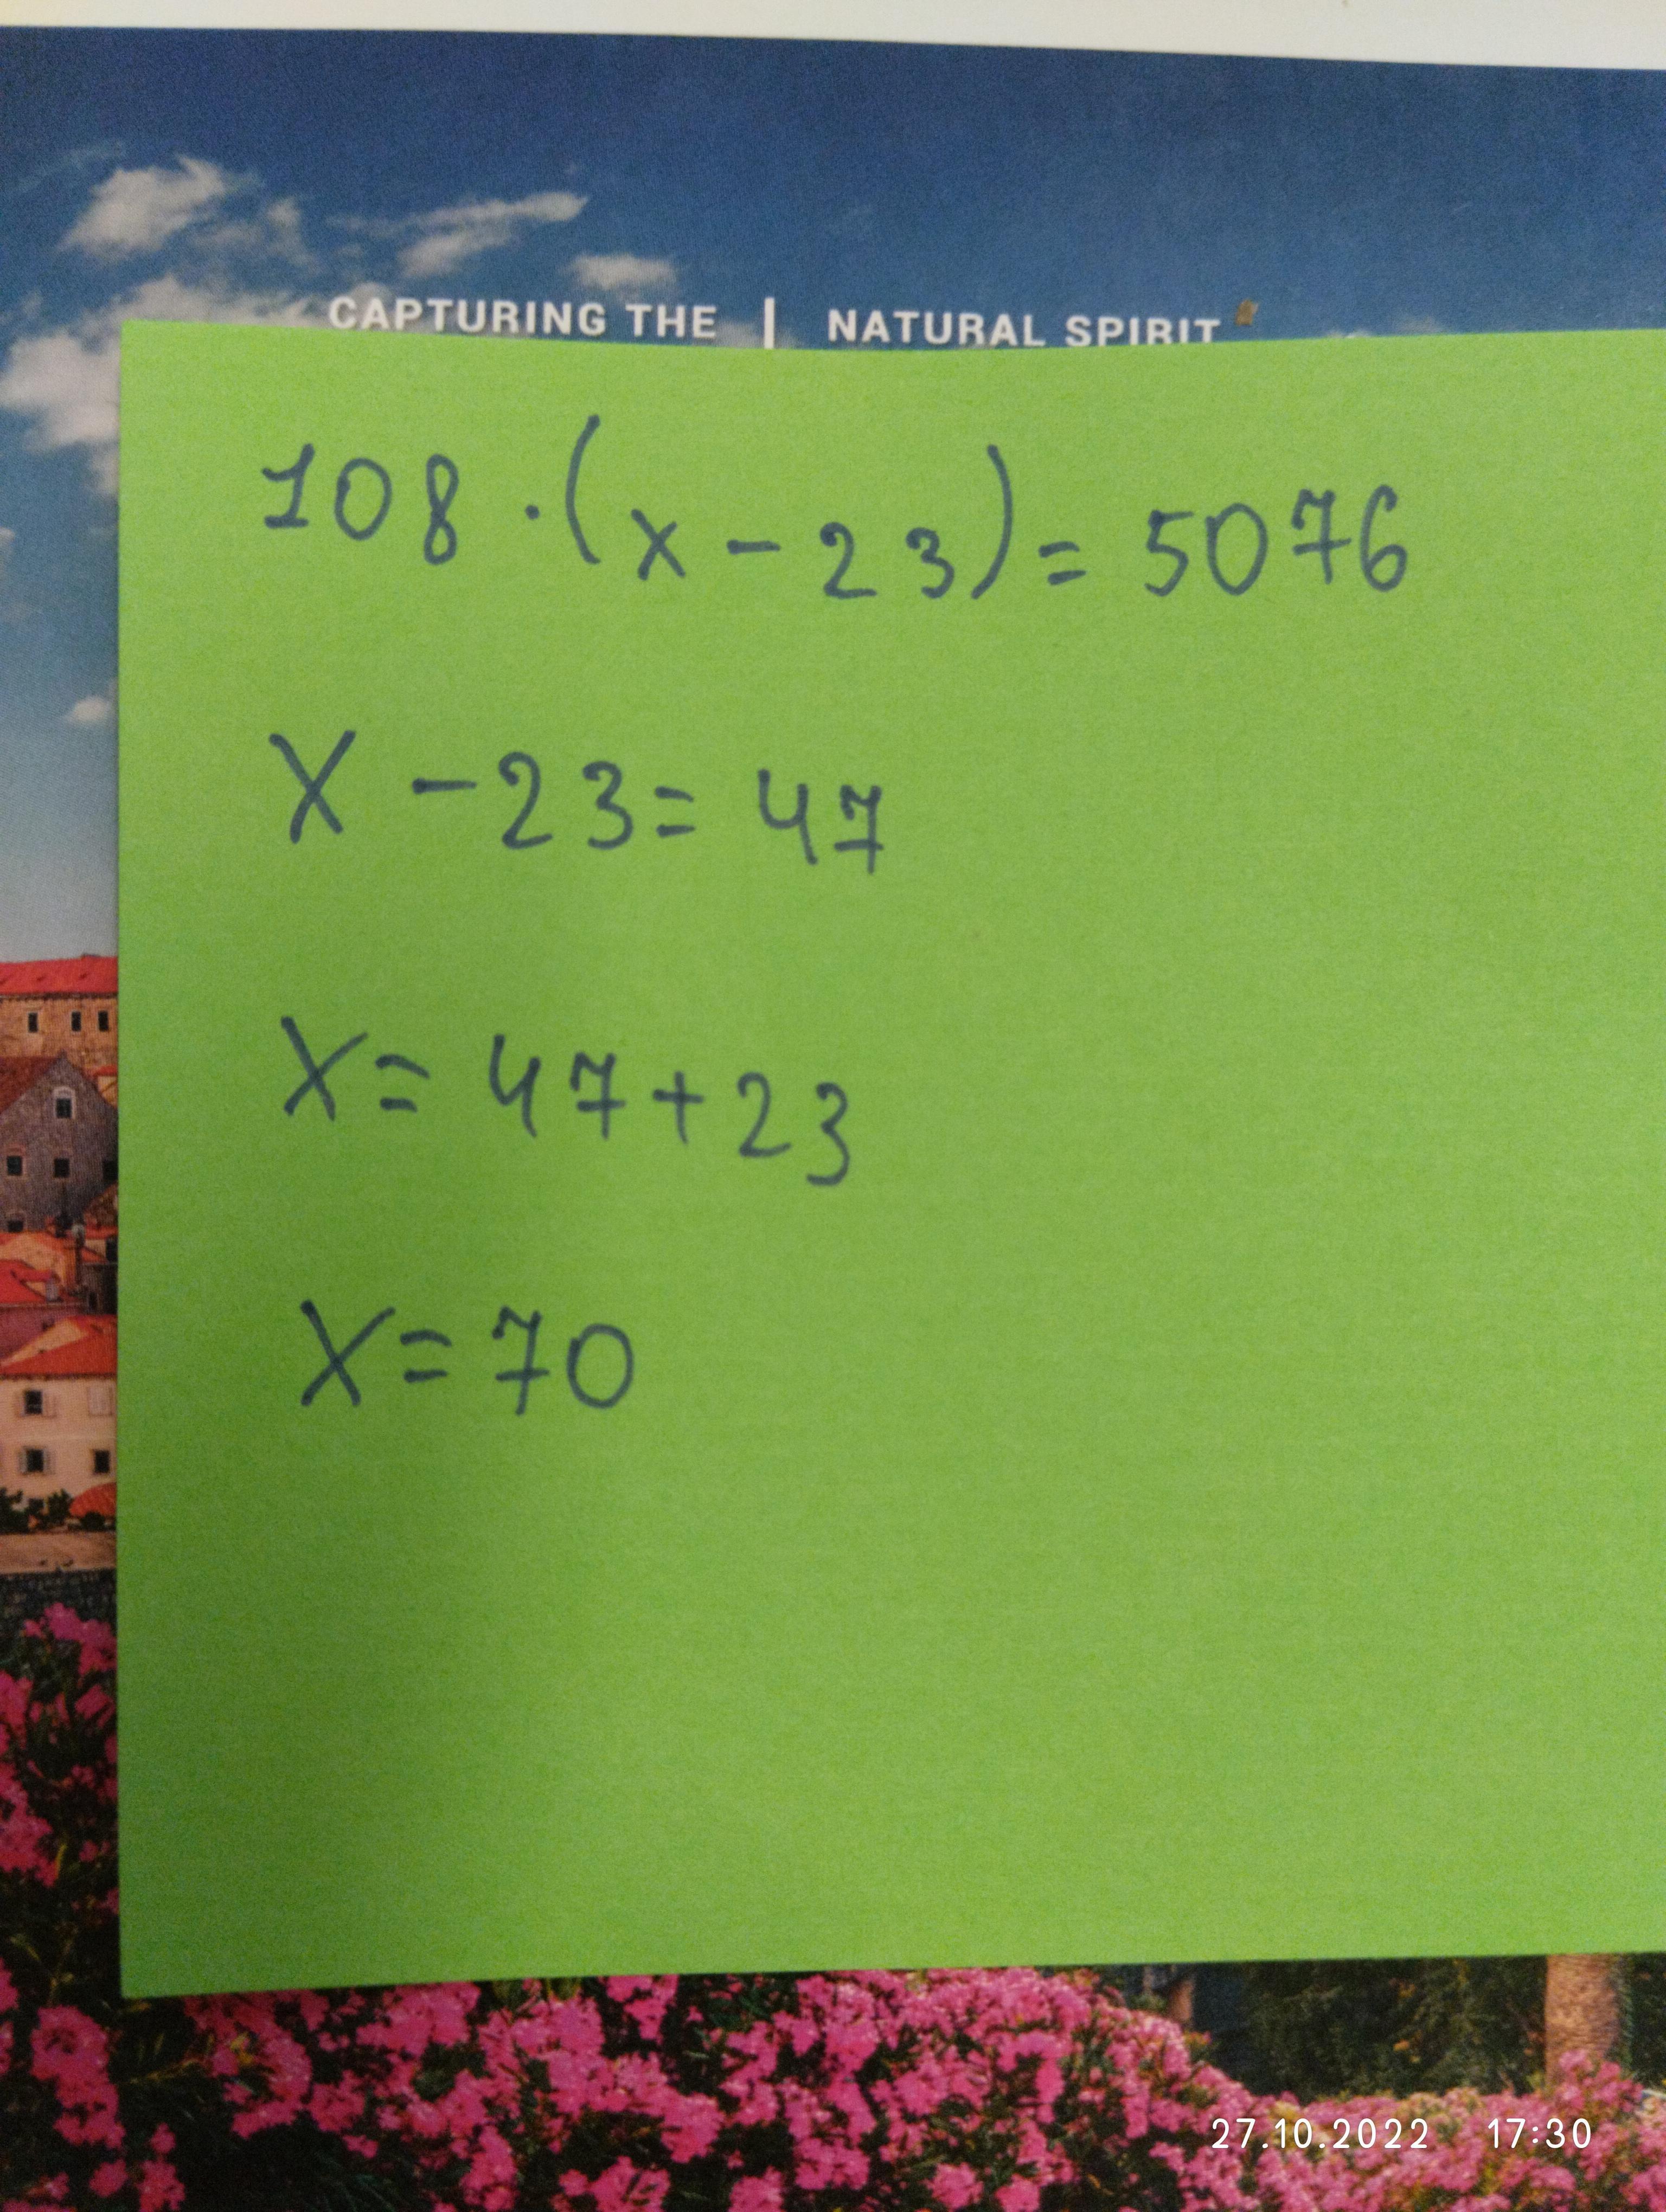 CAPTURING THE | NATURAL SPIRIT
108 · (x - 23) = 5076
X - 23 = 47
X = 47 + 23
X = 70
27.10.2022 17:30